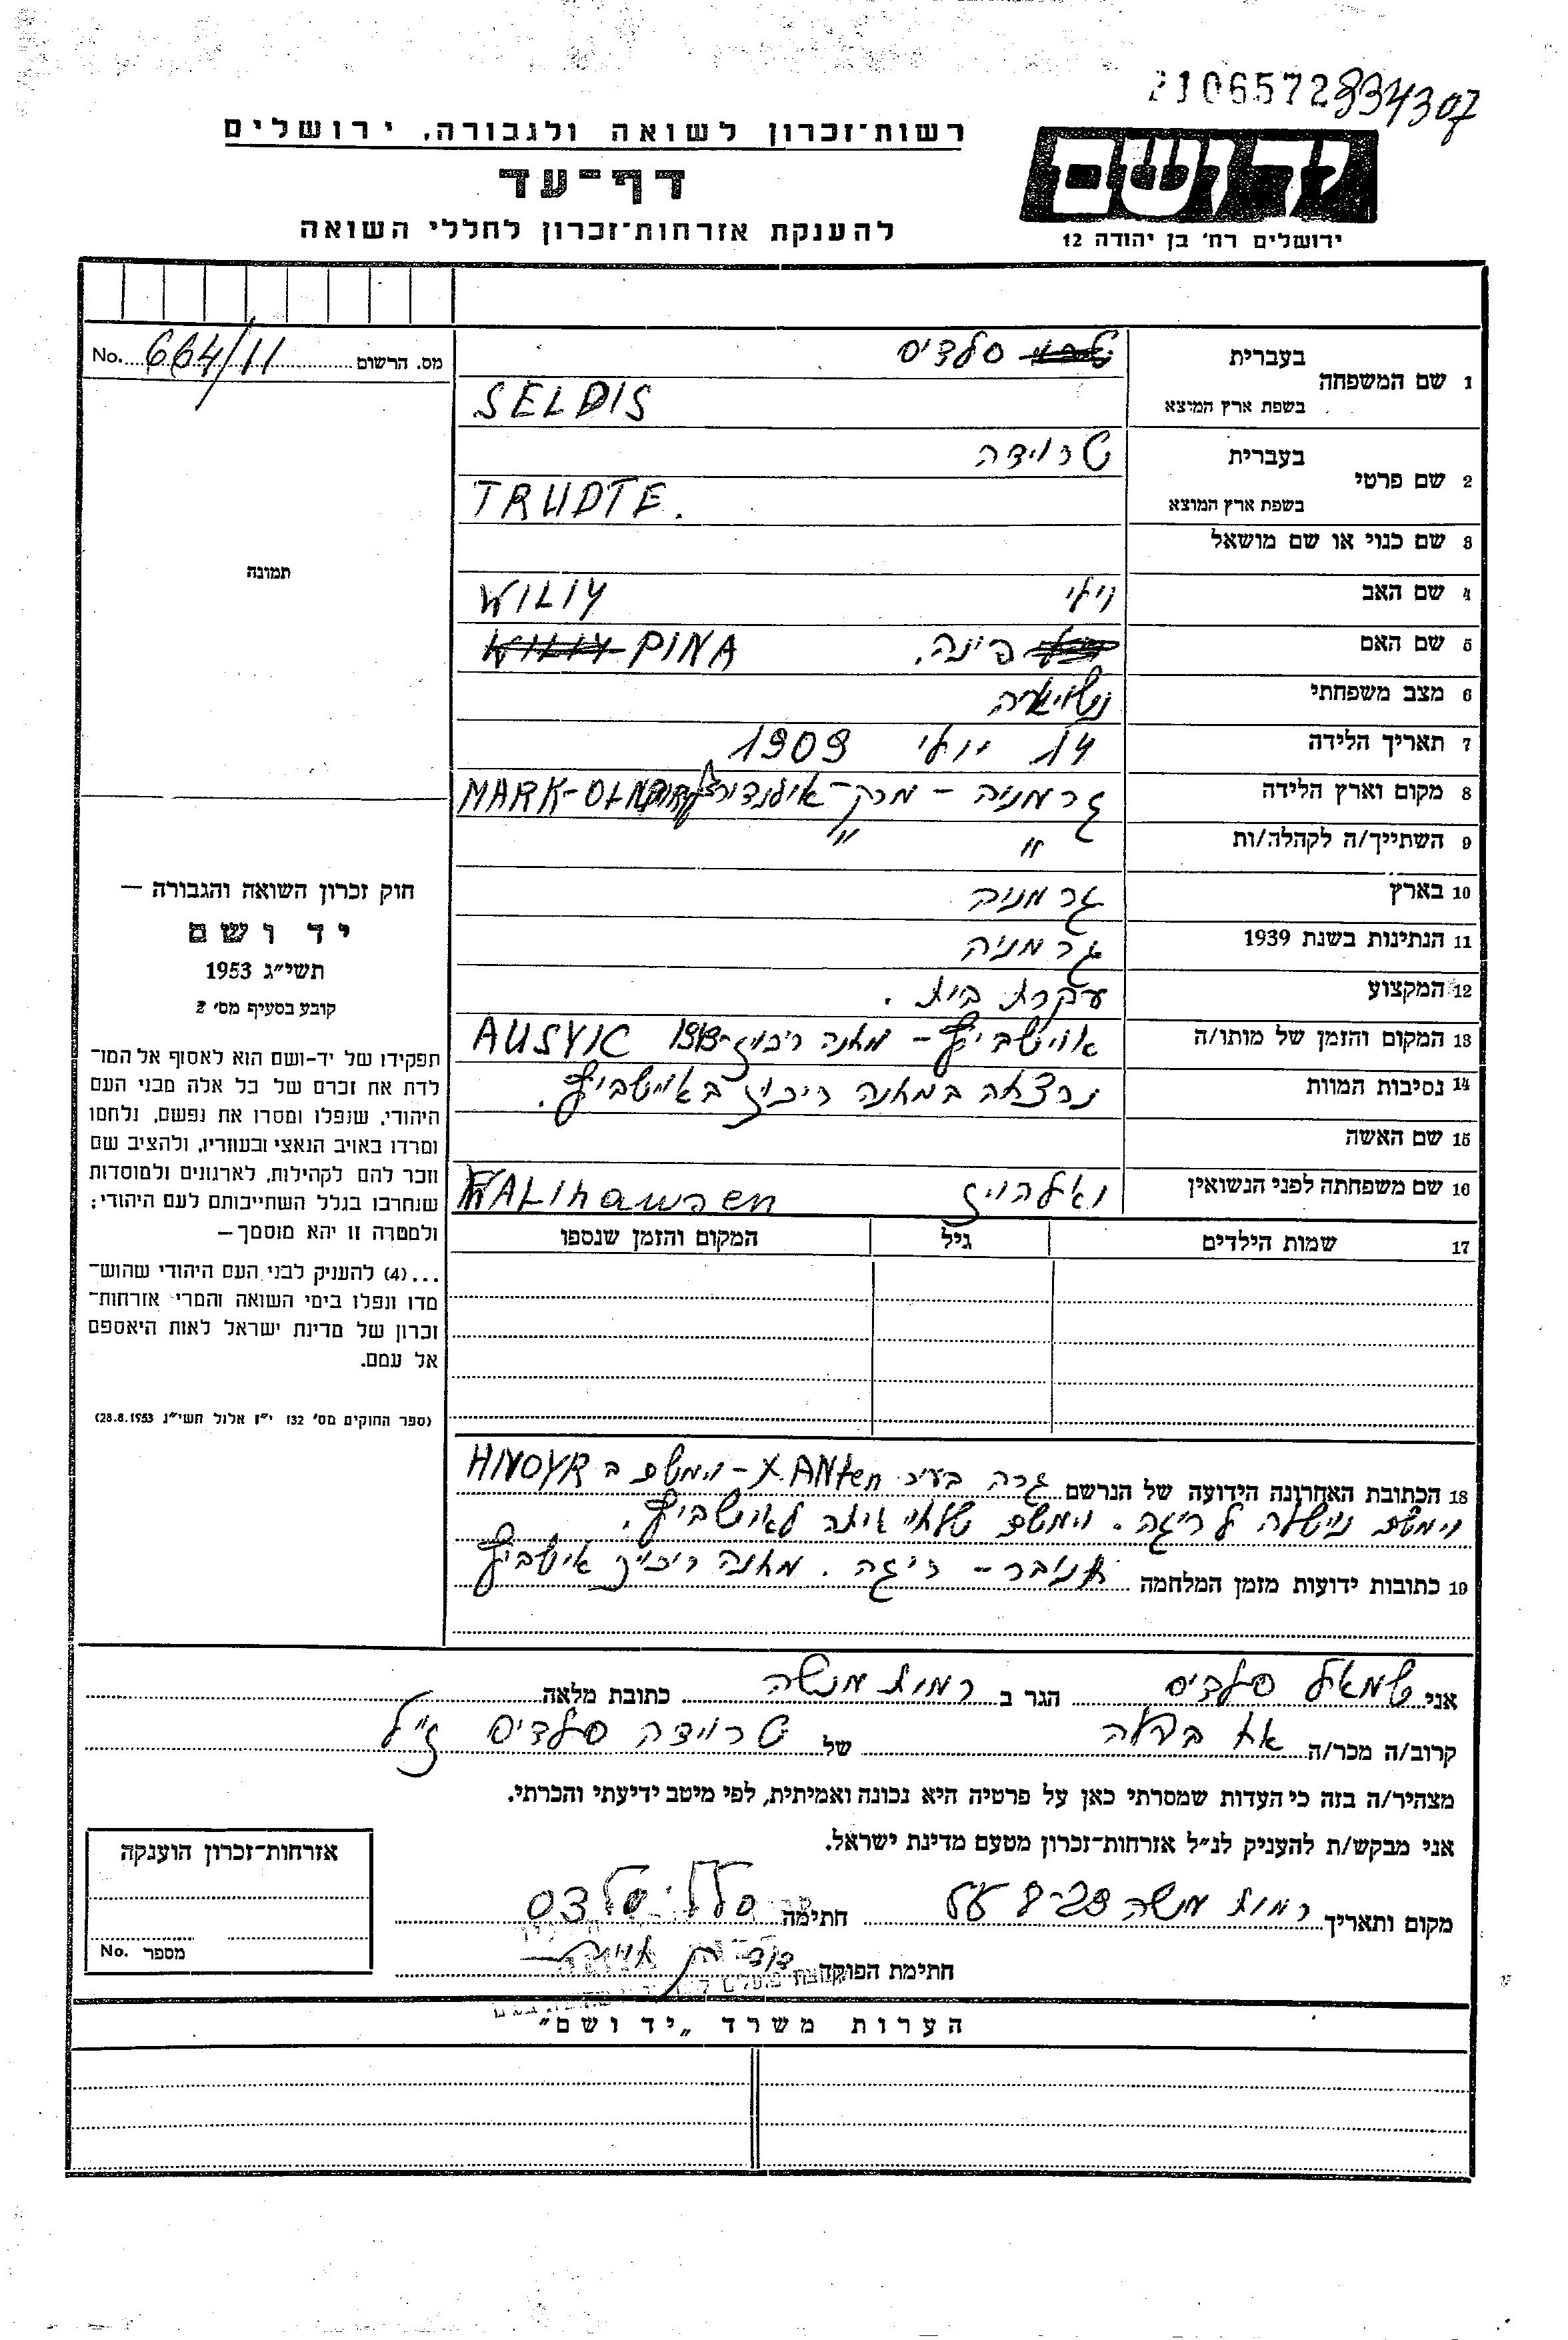 2106572 334307
רשות־זכרון לשואה ולגבורה, ירושלים
דף־עד
להענקת אזרחות־זכרון לחללי השואה
ידושם
ירושלים רח׳ בן יהודה 12
מס. הרשום 664/11 No.
1 שם המשפחה
בעברית סלדיס
בשפת ארץ המוצא SELDIS
2 שם פרטי
בעברית טרוידה
בשפת ארץ המוצא TRUDTE.
3 שם כנוי או שם מושאל
4 שם האב וילי WILIY
5 שם האם פינה. PINA
6 מצב משפחתי נשואיה
7 תאריך הלידה 14 יולי 1909
8 מקום וארץ הלידה גרמניה – מרק־ MARK-
9 השתייך/ה לקהלה/ות " "
10 בארץ גרמניה
11 הנתינות בשנת 1939 גרמניה
12 המקצוע עקרת בית.
13 המקום והזמן של מותו/ה אוישביץ – מחנה ריכוז AUSVIC
14 נסיבות המוות נרצחה במחנה ריכוז באוישביץ.
15 שם האשה
16 שם משפחתה לפני הנשואין ואלהויז
17 שמות הילדים גיל המקום והזמן שנספו
תמונה
חוק זכרון השואה והגבורה —
יד ושם
תשי״ג 1953
קובע בסעיף מס׳ 2
תפקידו של יד-ושם הוא לאסוף אל המו־
לדת את זכרם של כל אלה מבני העם
היהודי, שנפלו ומסרו את נפשם, נלחמו
ומרדו באויב הנאצי ובעוזריו, ולהציב שם
וזכר להם לקהילות, לארגונים ולמוסדות
שנחרבו בגלל השתייכותם לעם היהודי;
ולמטרה זו יהא מוסמך—
...(4) להעניק לבני העם היהודי שהוש־
מדו ונפלו בימי השואה והמרי אזרחות־
זכרון של מדינת ישראל לאות היאספם
אל עמם.
(ספר החוקים מס׳ 132 י״ז אלול תשי״ג 28.8.1953)
18 הכתובת האחרונה הידועה של הנרשם גרה בעיר XANten – ומשם ב HNOYR
ומשם נישלה לריגה. ומשם לאוישביץ.
19 כתובות ידועות מזמן המלחמה הנובר – ריגה. מחנה ריכוז אישביץ
אני שמאול סלדיס הגר ב רמות מנשה כתובת מלאה
קרוב/ה מכר/ה אח בעלה של טרוידה סלדיס ז״ל
מצהיר/ה בזה כי העדות שמסרתי כאן על פרטיה היא נכונה ואמיתית, לפי מיטב ידיעתי והכרתי.
אני מבקש/ת להעניק לנ״ל אזרחות־זכרון מטעם מדינת ישראל.
מקום ותאריך רמות מנשה חתימה
חתימת הפוקד
אזרחות־זכרון הוענקה
מספר No.
הערות משרד „יד ושם״